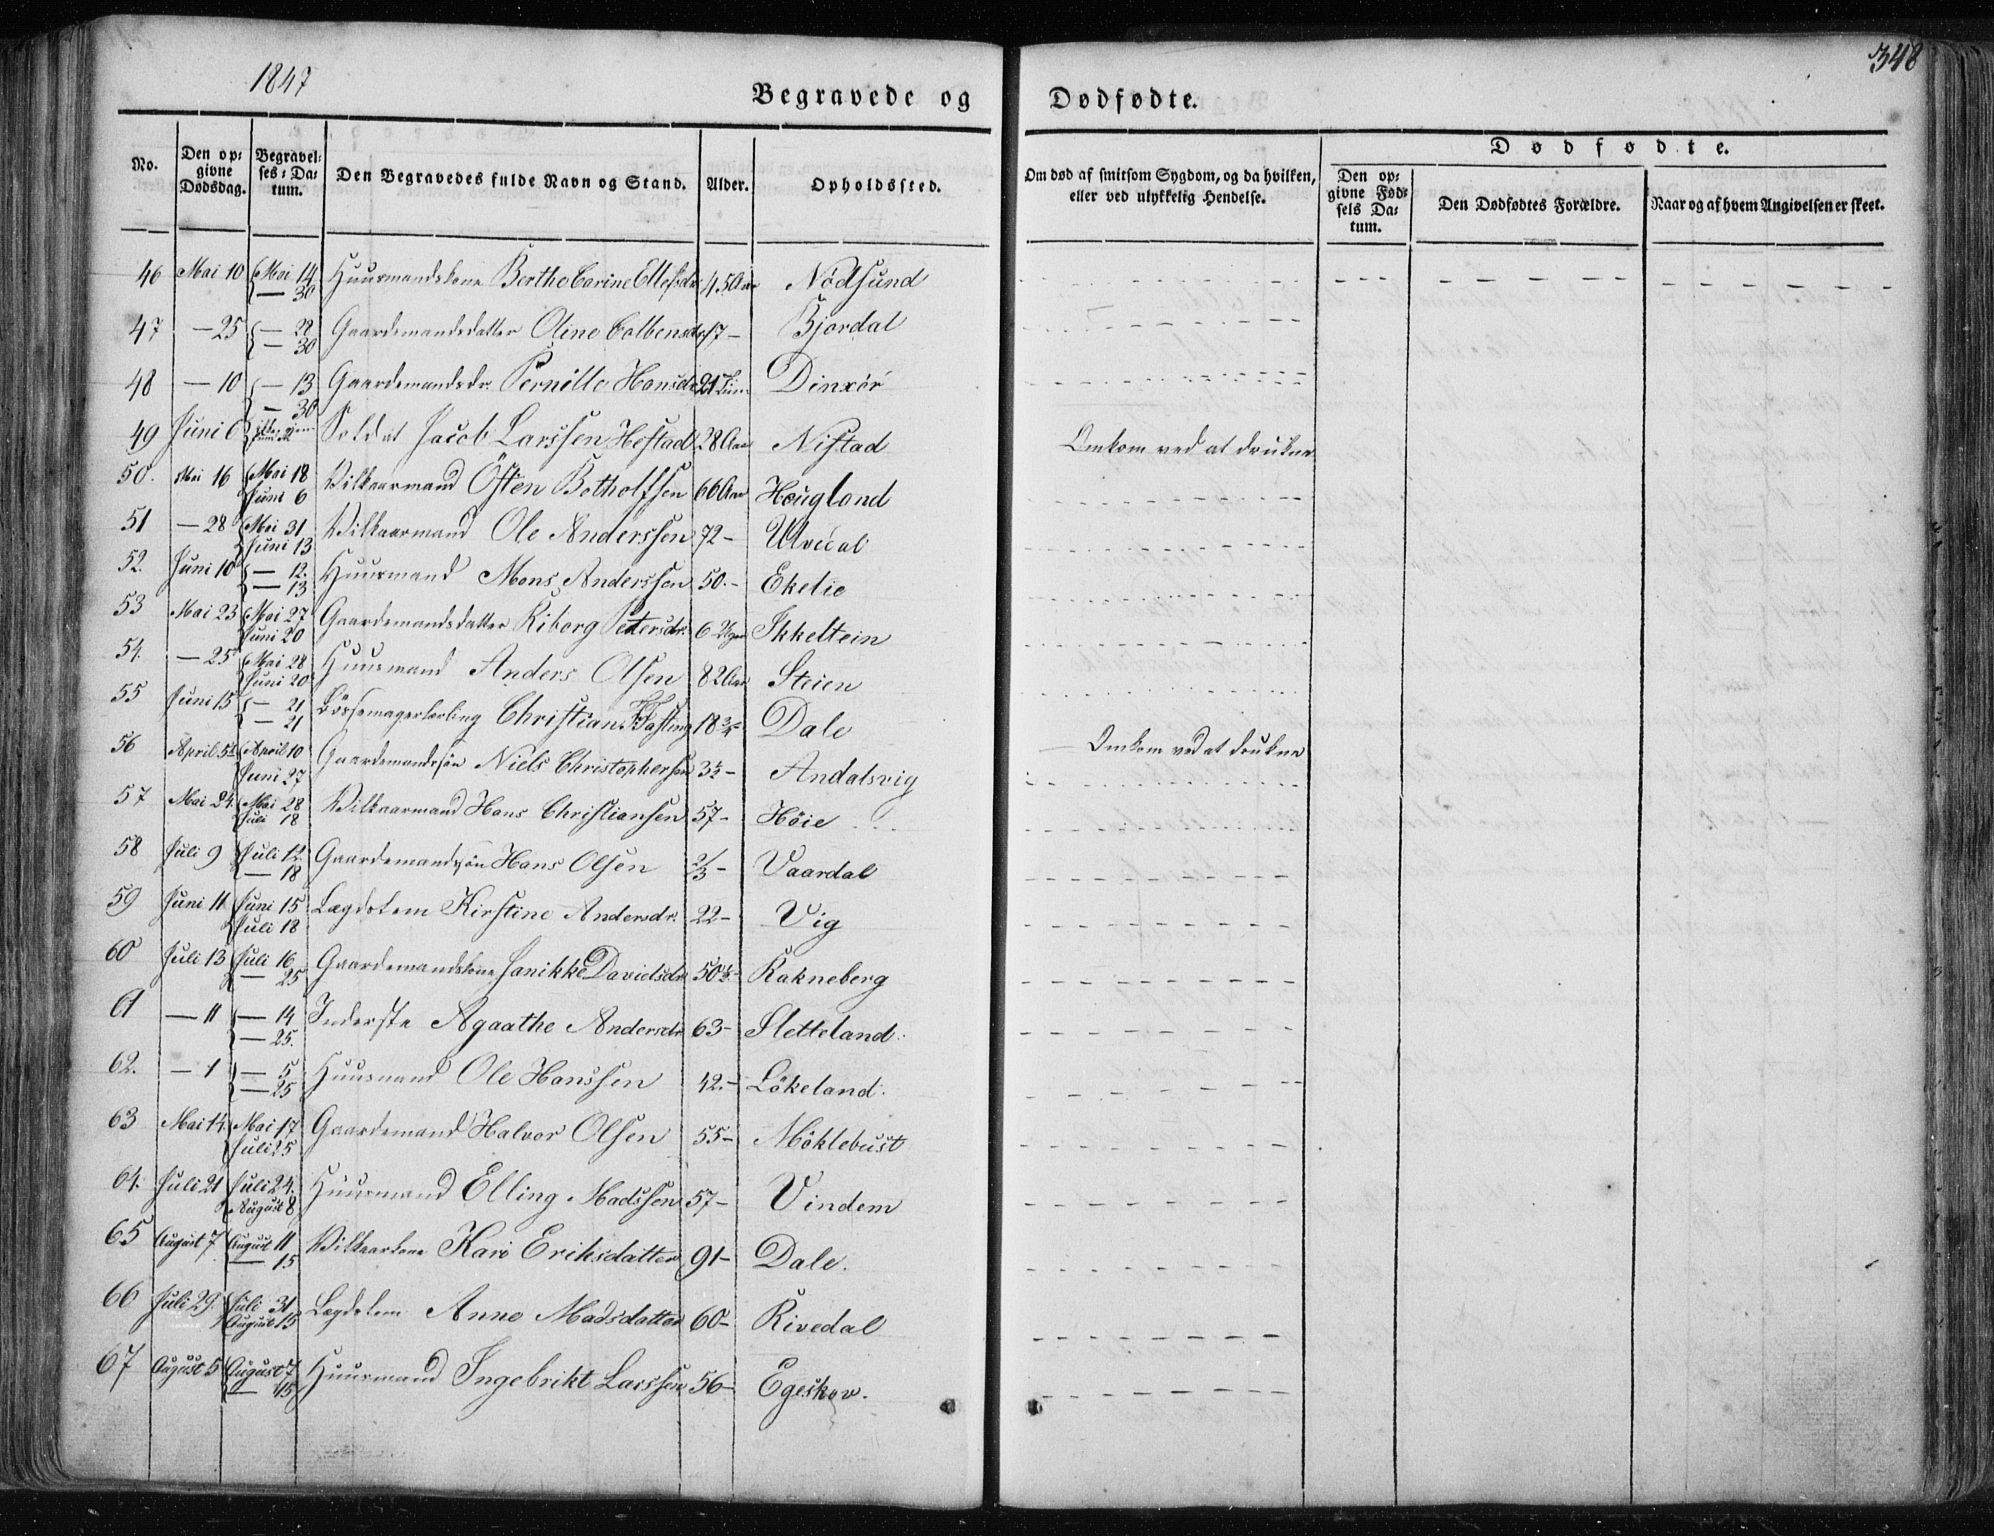 1847
348
Begravede og Dødfødte.
No.
Den opgivne Dødsdag.
Begravelses-Datum.
Den Begravedes fulde Navn og Stand.
Alder.
Opholdssted.
Om død af smitsom Sygdom, og da hvilken, eller ved ulykkelig Hendelse.
Dødfødte.
Den opgivne Fødsels Datum.
Den Dødfødtes Forældre.
Naar og af hvem Angivelsen er skeet.
46 Mai 10 Mai 14 Huusmandskone Berthe Carine Ellefsdr. 45 Aar Nødsund
— 30
47 — 25 — 22 Gaardemandsdatter Oline Colbensdr 17 — Bjordal
— 30
48 — 10 — 13 Gaardemandsdr. Pernille Hansdr. 21 Dinxör
— 30
49 Juni 6 Soldat Jacob Larssen Hestad 28 Aar Nistad Omkom ved at drukne
50. Mai 16 Mai 18 Vilkaarmand Östen Botholfsen 66 Aar Hougland
Juni 6
51 — 28 Mai 31 Vilkaarmand Ole Anderssen 72 — Ulvedal
Juni 13
52. Juni 10 — 12. Huusmand Mons Anderssen 50. — Ekelie
— 13
53 Mai 23 Mai 27 Gaardemandsdatter Kiborg Petersdr. 6 Uger Ikkeltein
Juni 20
54. — 25 Mai 28 Huusmand Anders Olsen 82 Aar Steien
Juni 20
55 Juni 15 — 21 Bössemagerlærling Christian Fasting 18 3/4 — Dale Omkom ved at drukne
— 21
56 April 5te April 10 Gaardemandssön Niels Christophersen 3½ — Andalsvig
Juni 27
57 Mai 24. Mai 28 Vilkaarmand Hans Christiansen 57 — Höie
Juli 18
58 Juli 9 Juli 12. Gaardemandssön Hans Olsen 2/3 — Vaardal
— 18
59 Juni 11 Juni 15 Lægdslem Kirstine Andersdr. 22 — Vig
Juli 18
60 Juli 13 Juli 16 Gaardemandskone Janikke Davidsdr. 50½ — Rakneberg
— 25
61 — 11 — 14 Inderste Agaathe Andersdr. 63 — Sletteland.
— 25.
62. — 1 — 5 Huusmand Ole Hanssen 42. — Lökeland.
— 25
63 Mai 14. Mai 17 Gaardemand Halvor Olsen 55 — Möklebust
Juli 25
64. Juli 21 Juli 24. Huusmand Elling Madssen 57 — Vindem
August 8
65 August 7 August 11 Vilkaarkone Kari Eriksdatter 91 — Dale.
— 15
66 Juli 29. Juli 31 Lægdslem Anne Madsdatter 60 — Rivedal
August 15
67 August 5 August 7 Huusmand Ingebrikt Larssen 56 — Egeskov.
— 15